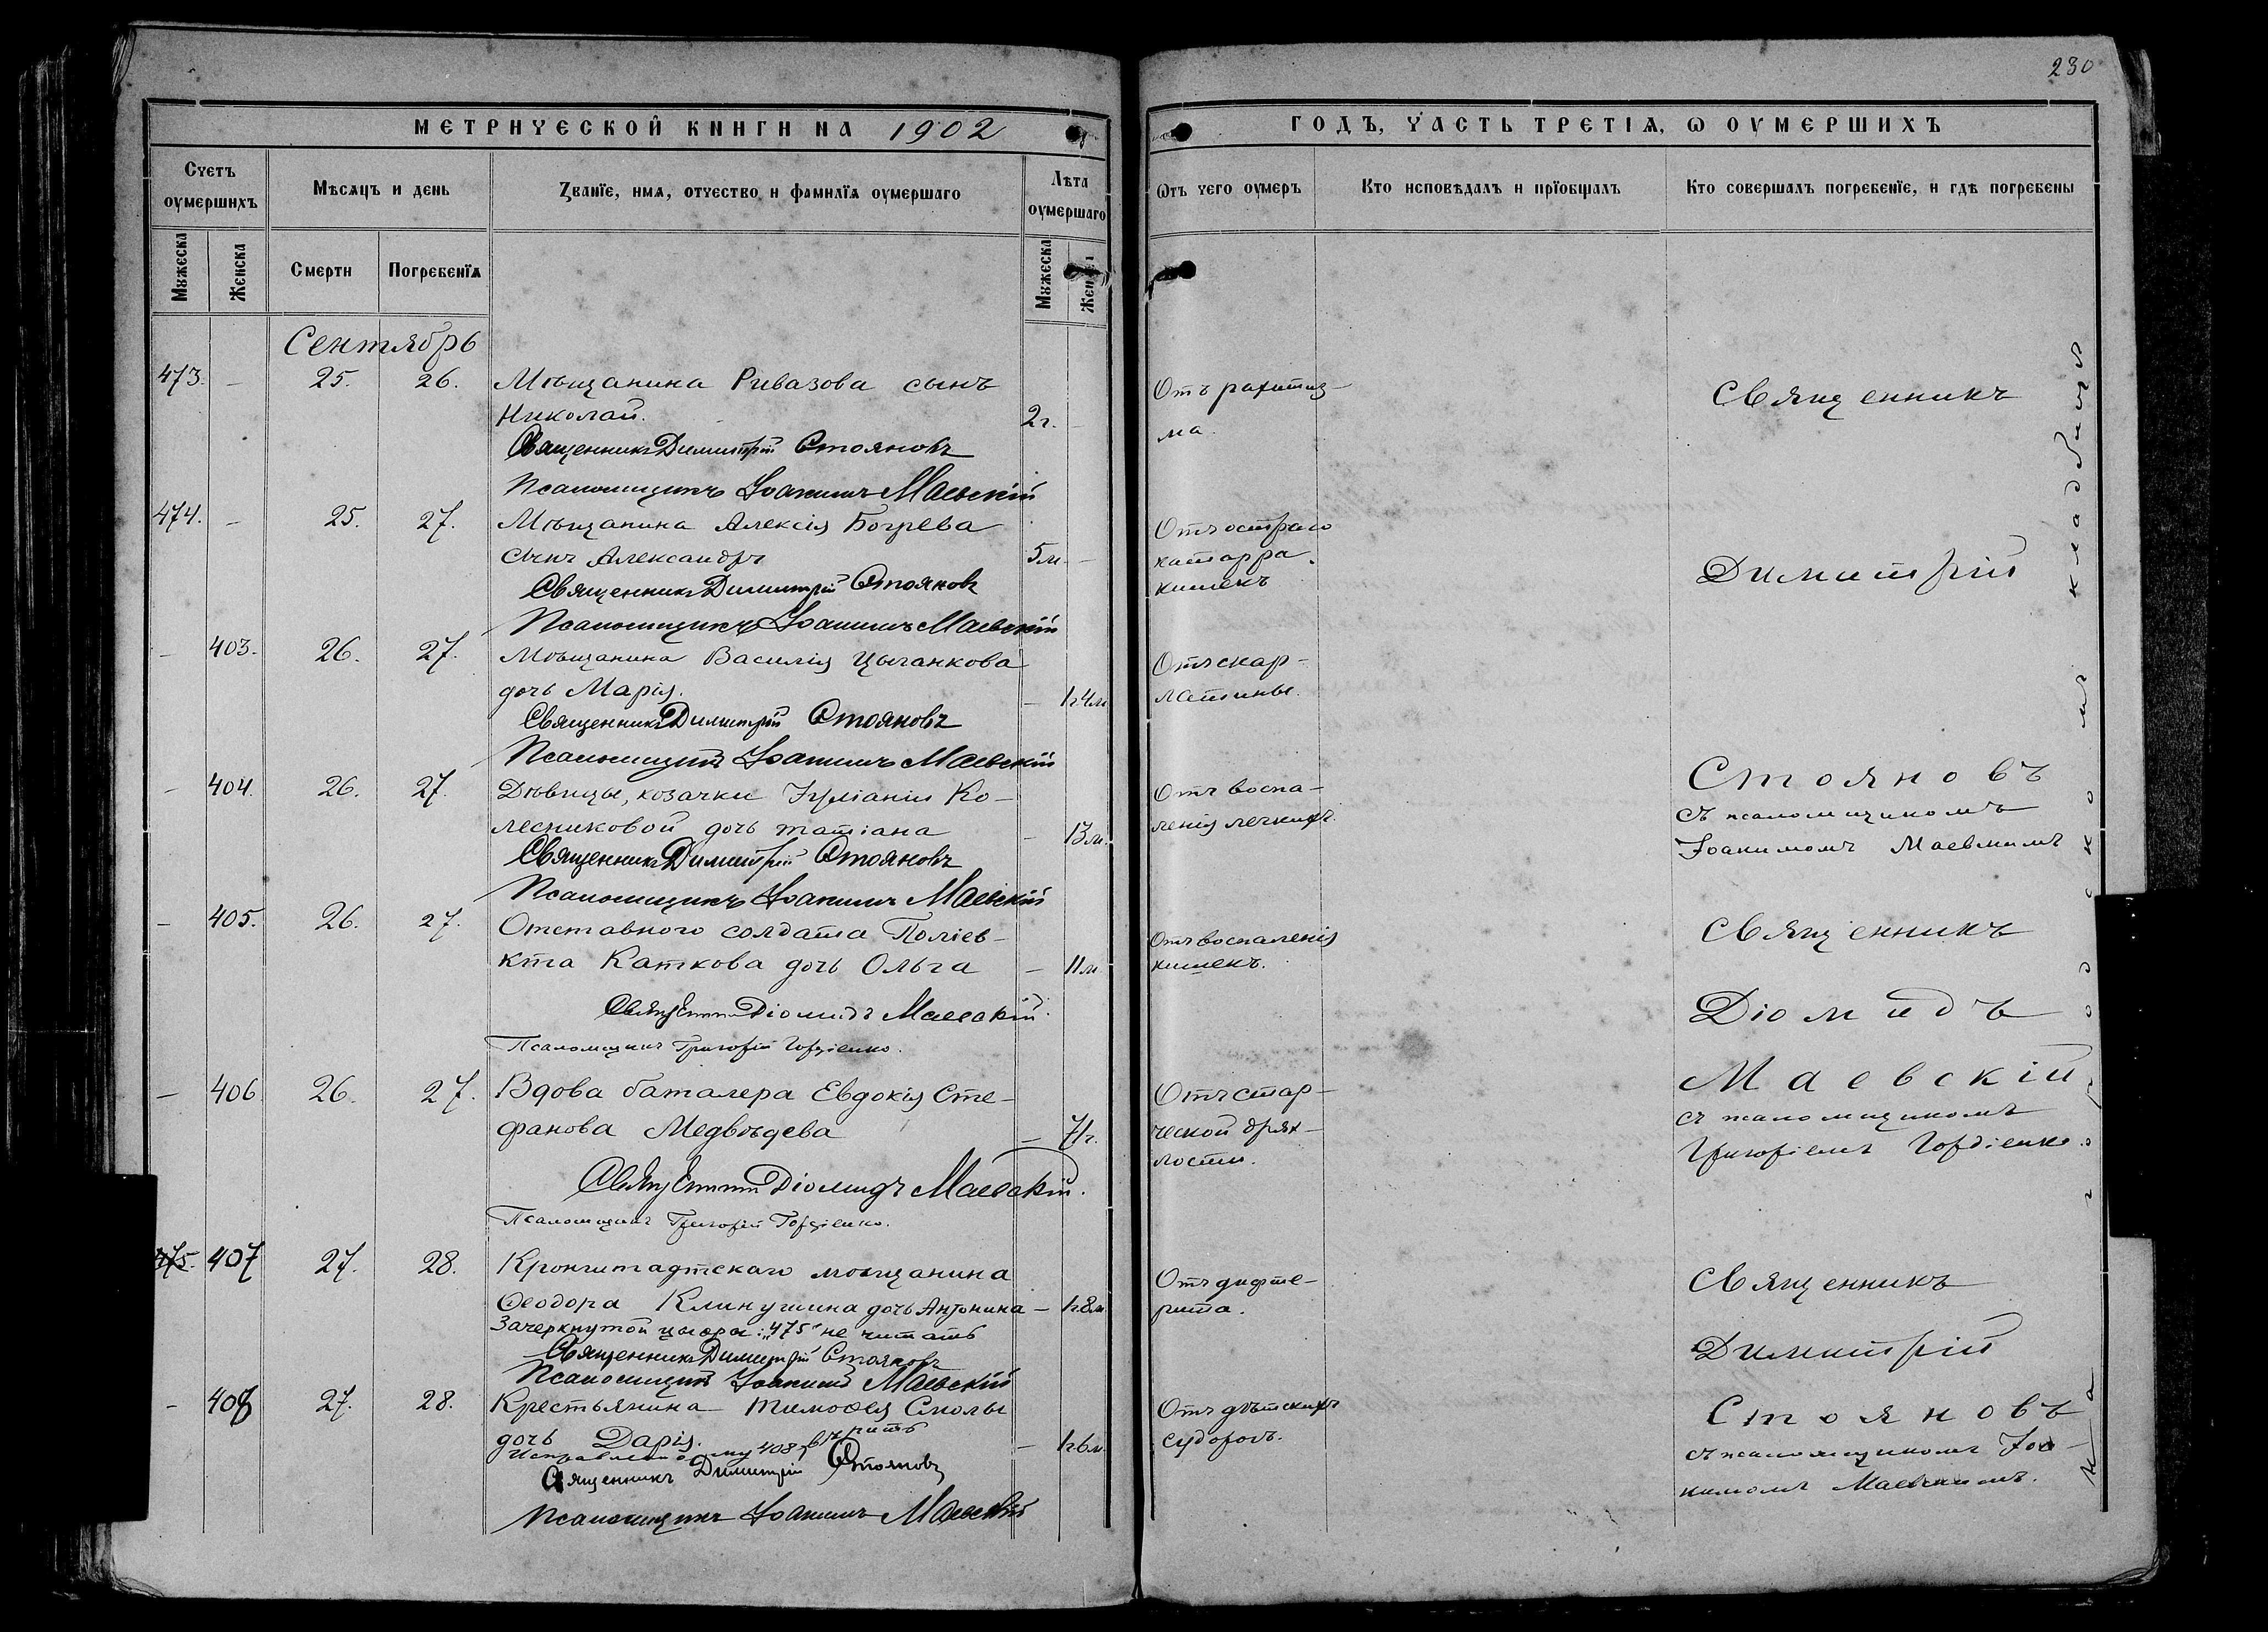 230
МЕТРИЧЕСКОЙ КНИГИ НА 1902
ГОДЪ, ЧАСТЬ ТРЕТІѦ, Ѡ ОУМЕРШИХЪ
Счетъ оумершихъ
Мѣсяцъ и день
Званїе, имя, отчество и фамилїя оумершаго
Лѣта оумершаго
Ѿтъ чего оумеръ
Кто исповѣдалъ и прїобщалъ
Кто совершалъ погребенїе, и гдѣ погребены
Мꙋжеска
Женска
Смерти
Погребенїя
Мꙋжеска
Сентябрь
473. - 25. 26. Мѣщанина Ривазова сынъ
Николай. 2г. -
Отъ рахитиз-
ма.
Священникъ Димитрій Стояновъ
Псаломщикъ Іоакимъ Маевскій
474. - 25. 27. Мѣщанина Алексія
сынъ Александръ 5м. -
Отъ остраго
катарра
кишекъ
Священникъ Димитрій Стояновъ
Псаломщикъ Іоакимъ Маевскій
- 403. 26. 27. Мѣщанина Василія Цыганкова
дочь Марія. - 1г.4м.
Отъ скар-
латины.
Священникъ Димитрій Стояновъ
Псаломщикъ Іоакимъ Маевскій
- 404. 26. 27. Дѣвицы, козачки Іуліаніи Ко-
лесниковой дочь Татіана - 13м.
Отъ воспа-
ленія легкихъ.
Священникъ Димитрій Стояновъ
Псаломщикъ Іоакимъ Маевскій
- 405. 26. 27. Отставного солдата Поліев-
кта Каткова дочь Ольга - 11м.
Отъ воспаленія
кишекъ.
Священникъ Діомидъ Маевскій.
Псаломщикъ Григорій Гордіенко.
- 406 26. 27. Вдова баталера Евдокія Сте-
фанова Медвѣдева - 71г.
Отъ стар-
ческой дрях-
лости.
Священникъ Діомидъ Маевскій.
Псаломщикъ Григорій Гордіенко.
475. 407 27. 28. Кронштадтскаго мѣщанина
Ѳеодора Клинушина дочь Антонина - 1г.8м.
Отъ дифте-
рита.
Зачеркнутой цыфры: "475" не читать
Священникъ Димитрій Стояновъ
Псаломщикъ Іоакимъ Маевскій
- 408 27. 28. Крестьянина Тимоѳея Смолы
дочь Дарія. - 1г.6м.
Отъ дѣтскихъ
судорогъ.
Исправленному 408 вѣрить
Священникъ Димитрій Стояновъ
Псаломщикъ Іоакимъ Маевскій
Священникъ
Димитрій
Стояновъ
съ псаломщикомъ
Іоакимомъ Маевскимъ
Священникъ
Діомидъ
Маевскій
съ псаломщикомъ
Григоріемъ Гордіенко.
Священникъ
Димитрій
Стояновъ
съ псаломщикомъ Іоа-
кимомъ Маевскимъ.
На городскомъ кладбищѣ